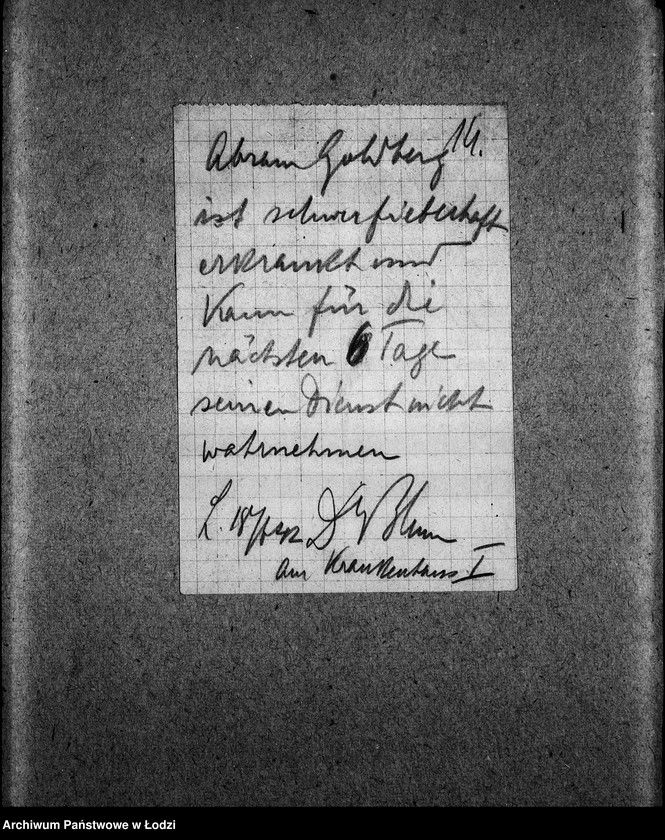 Abram Goldberg 14.
ist schwer fieberhaft
erkrankt und
kann für die
nächsten 6 Tage
seinen Dienst nicht
wahrnehmen
L. Dr Blum
am Krankenhaus I
Archiwum Państwowe w Łodzi